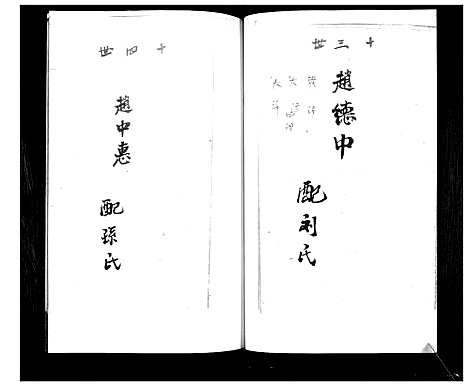 十三世
趙德中
配利氏
十四世
趙中惠
配孫氏